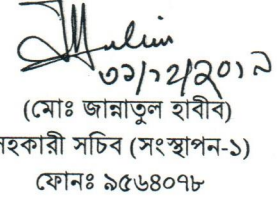 ৩১/১২/২০১৯
(মোঃ জান্নাতুল হাবীব)
সহকারী সচিব (সংস্থাপন-১)
ফোনঃ ৯৫৬৪০৭৮